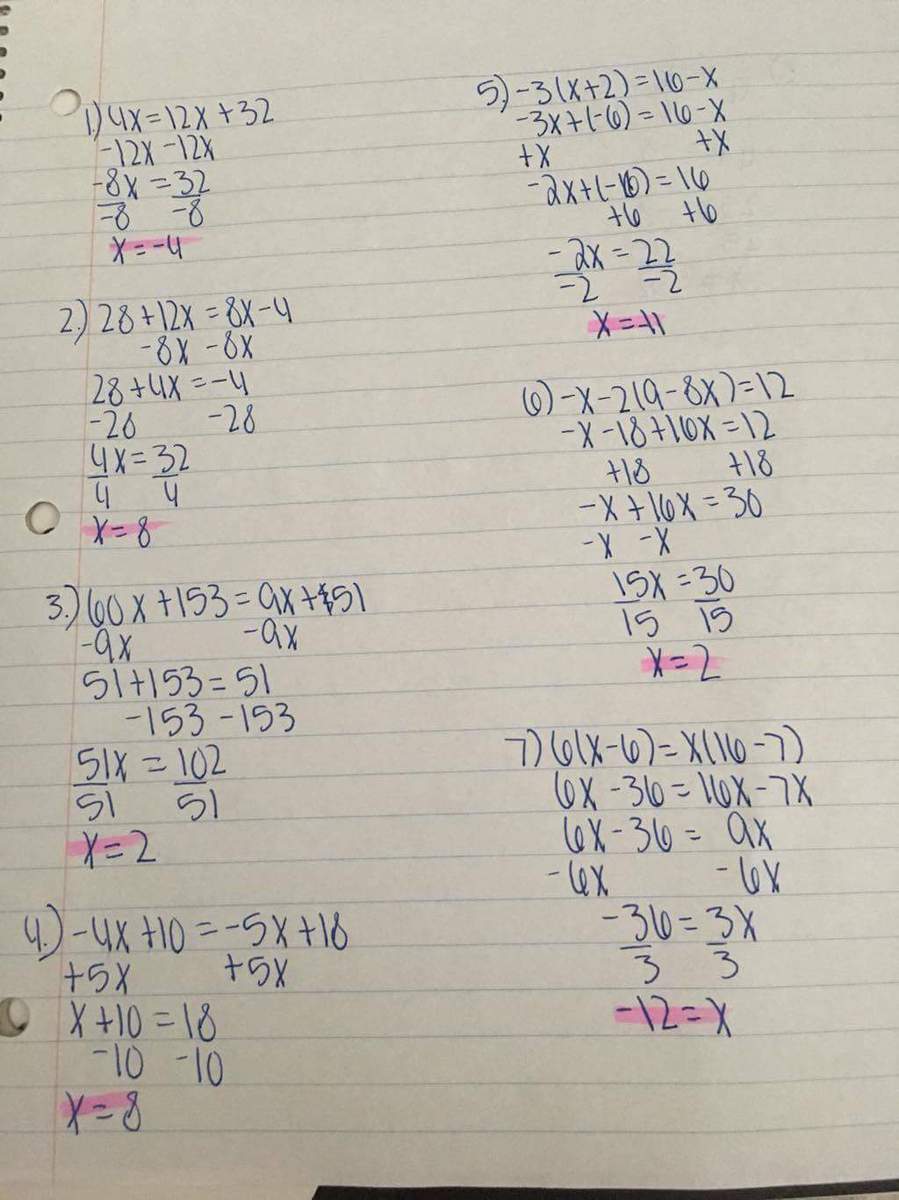 1.) 4x = 12x + 32
-12x -12x
-8x = 32
-8 -8
x = -4
2.) 28 + 12x = 8x - 4
-8x -8x
28 + 4x = -4
-28 -28
4x = 32
4 4
x = 8
3.) 60x + 153 = 9x + 51
-9x -9x
51 + 153 = 51
-153 -153
51x = 102
51 51
x = 2
4.) -4x + 10 = -5x + 18
+5x +5x
x + 10 = 18
-10 -10
x = 8
5.) -3(x + 2) = 16 - x
-3x + (-6) = 16 - x
+x +x
-2x + (-6) = 16
+6 +6
-2x = 22
-2 -2
x = -11
6) -x - 2(9 - 8x) = 12
-x - 18 + 16x = 12
+18 +18
-x + 16x = 30
-x -x
15x = 30
15 15
x = 2
7) 6(x - 6) = x(16 - 7)
6x - 36 = 16x - 7x
6x - 36 = 9x
-6x -6x
-36 = 3x
3 3
-12 = x